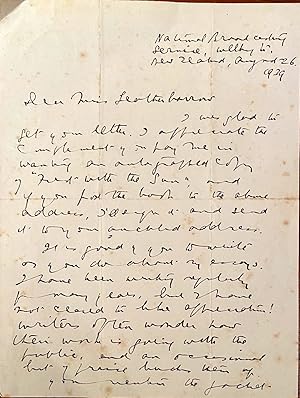 National Broadcasting
Service, Wellington
New Zealand, August 26
1939
Dear Miss Leatherbarrow
I was glad to
get your letter. I appreciate the
compliment you pay me in
wanting an autographed copy
of "Tread with the Sun", and
if you post the book to the above
address, I'll sign it and send
it to your address.
It is good of you to write
as you do about my essays.
I have been writing regularly
for many years, but I have
not ceased to like appreciation!
Writers often wonder how
their work is going with the
public, and an occasional
bit of praise bucks them up
you mention the jacket.